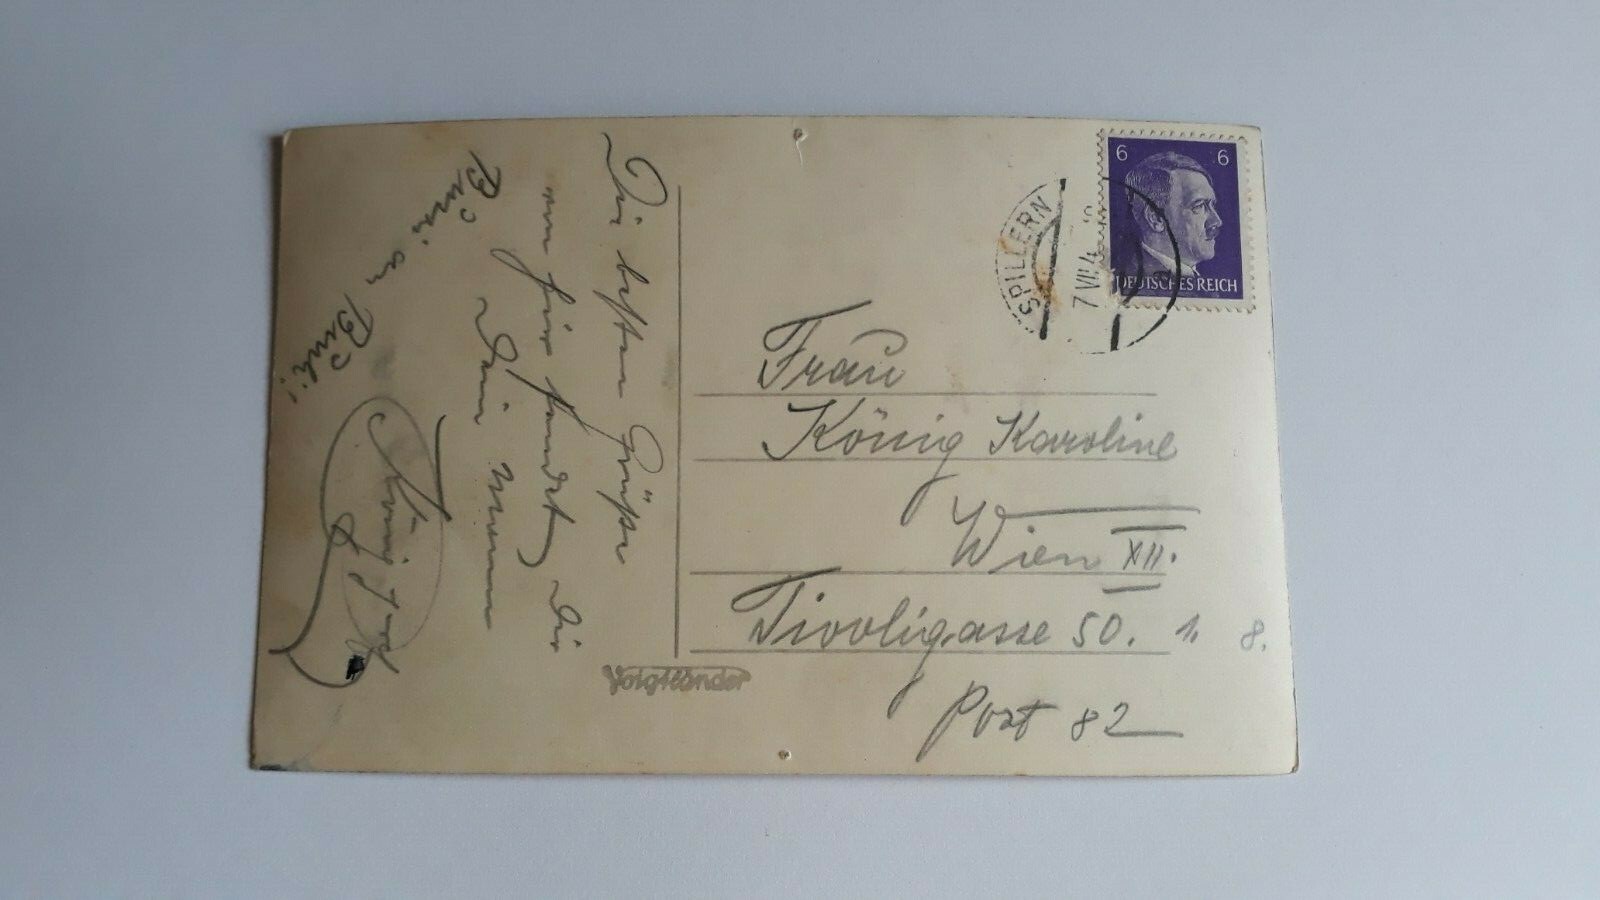 Die besten Grüße
von hier sendet dir
dein
Bussi an
König
SPILLERN
7 VII 4
6 6
DEUTSCHES REICH
Frau
König Karoline
Wien XII.
Tivoligasse 50. 1. 8.
Post 82
Voigtländer